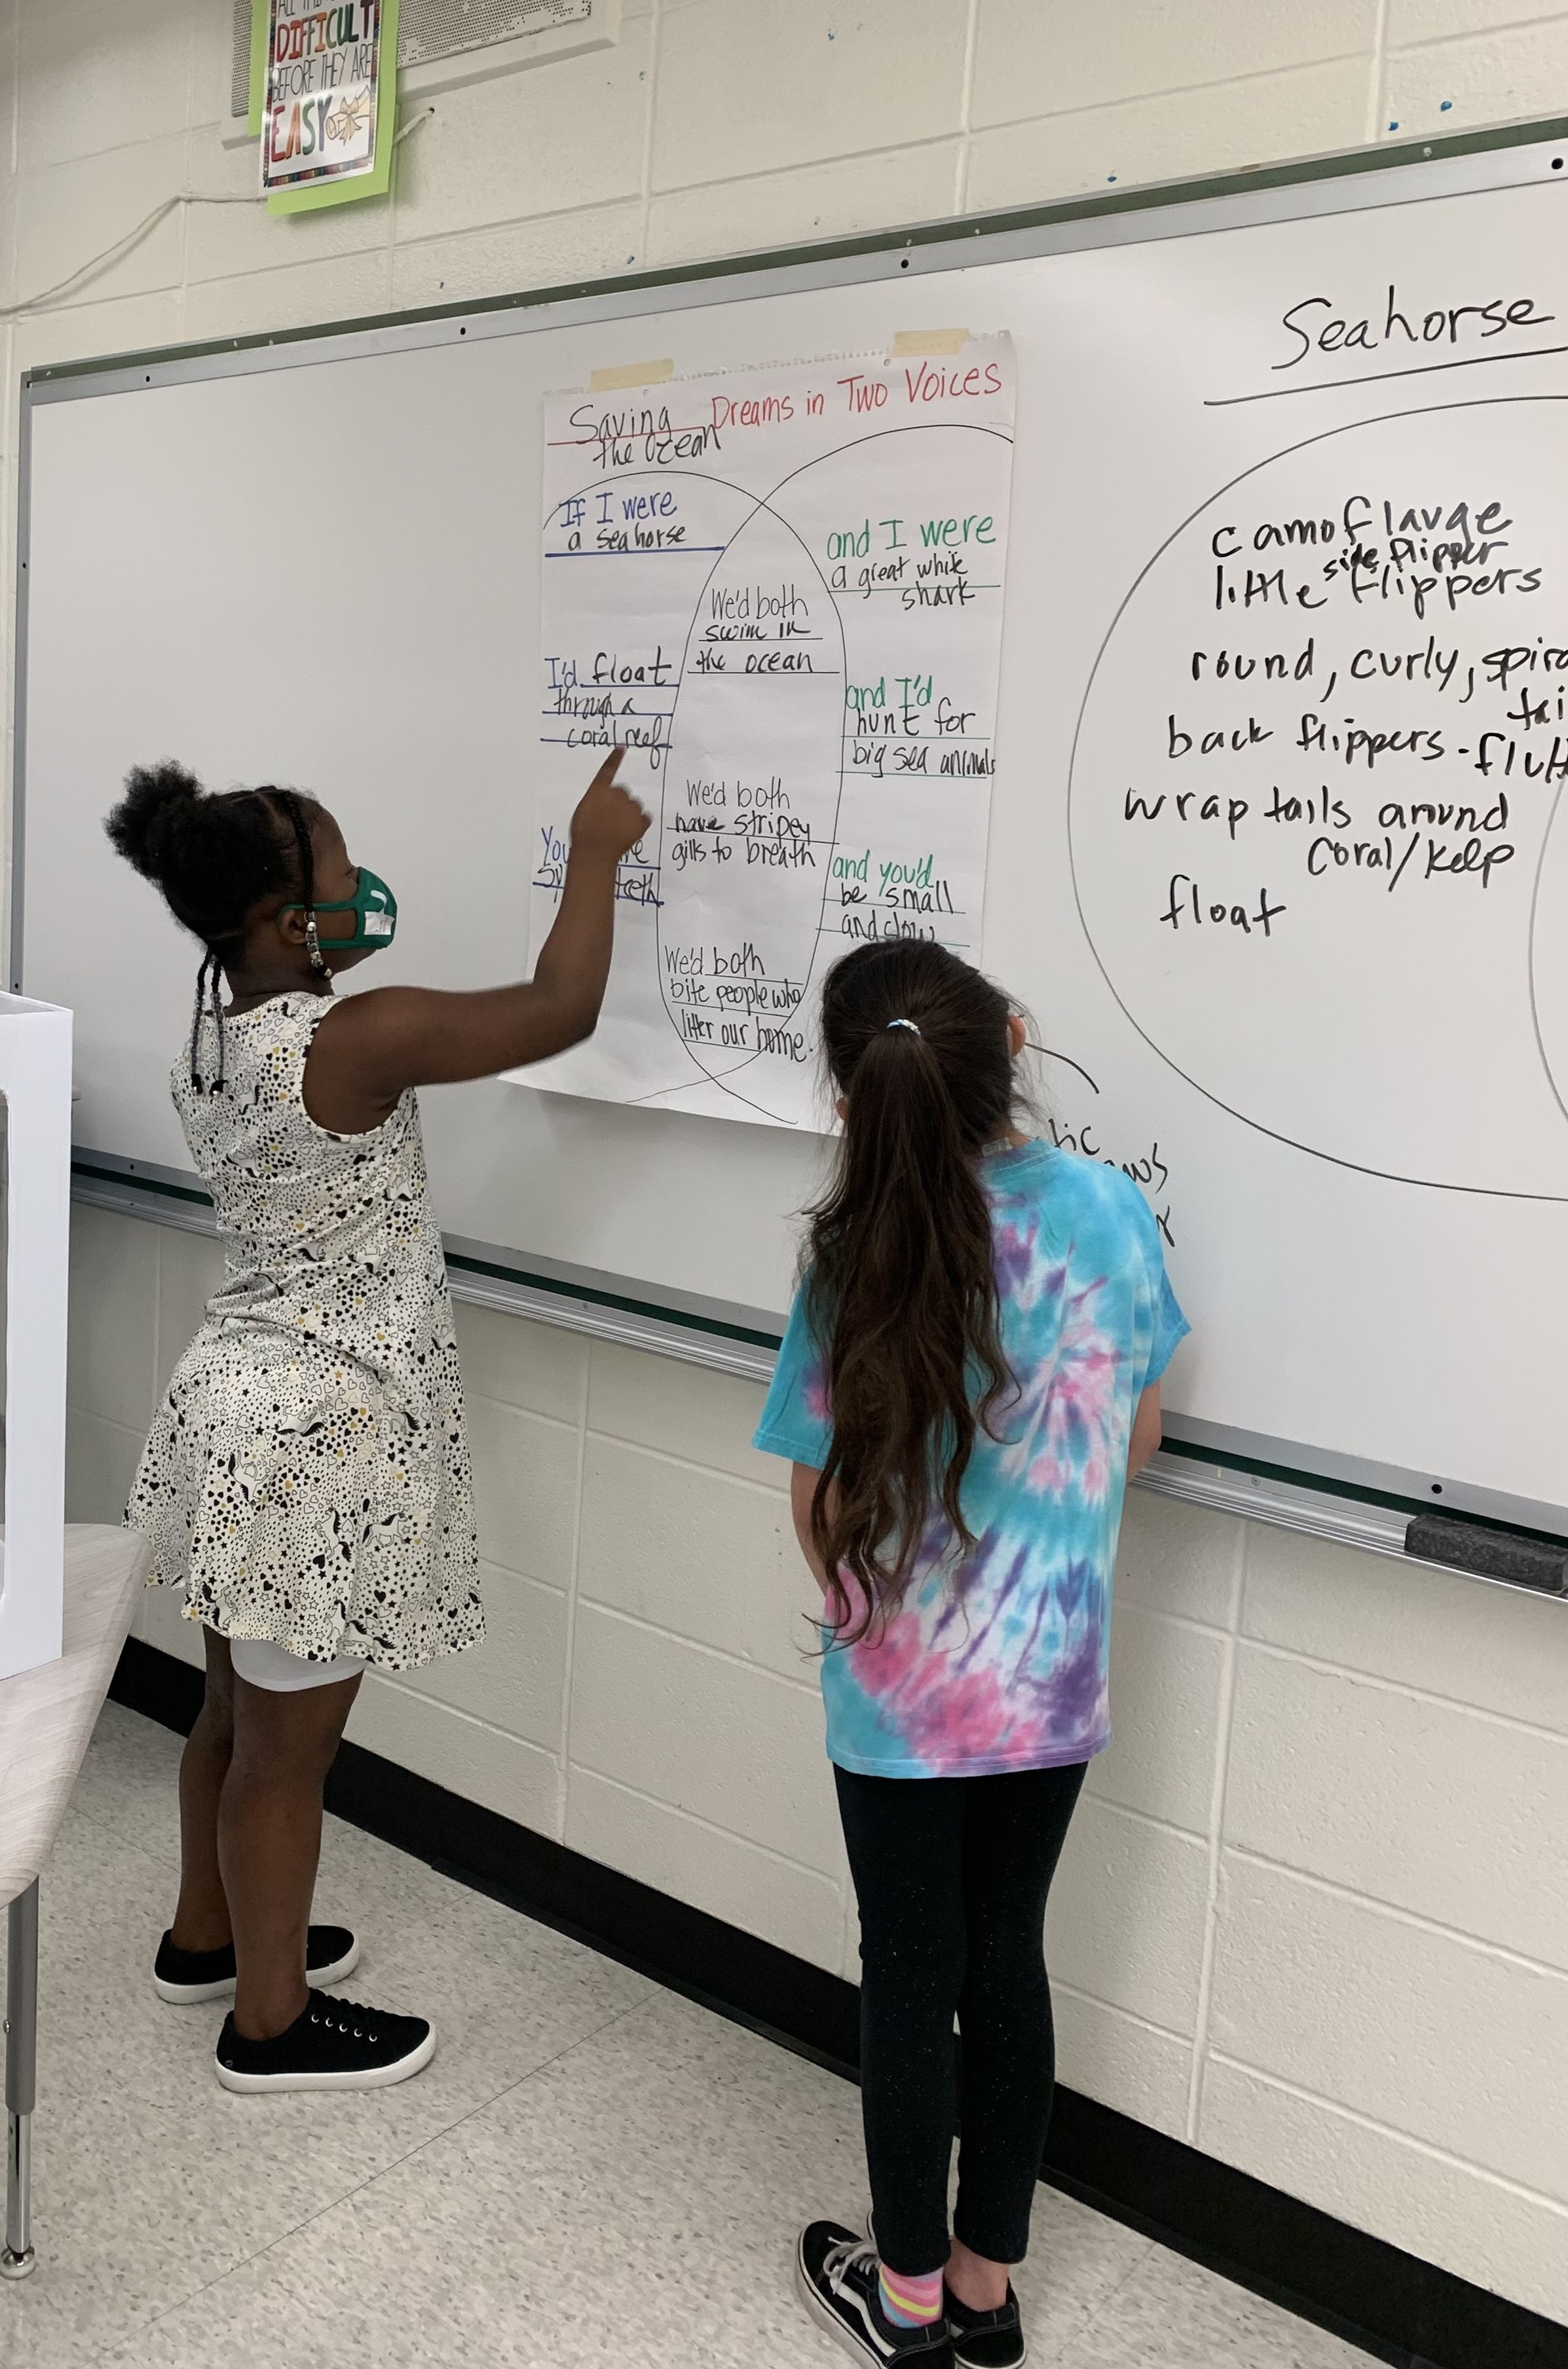 DIFFICULT
BEFORE THEY ARE
EASY
Saving
the Ocean
Dreams in Two Voices
If I were
a seahorse
and I were
a great white
shark
We'd both
swim in
the ocean
I'd float
through a
coral reef
and I'd
hunt for
big sea animals
We'd both
have stripey
gills to breath
teeth
and you'd
be small
and slow
We'd both
bite people who
litter our home.
Seahorse
camoflauge
side flipper
little flippers
round, curly,
back flippers -
wrap tails around
coral/kelp
float